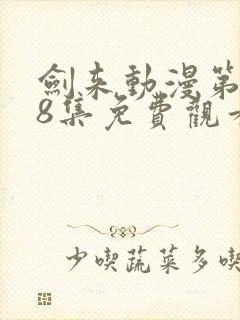 劍来動漫第
8集免費觀
少喫蔬菜多喫